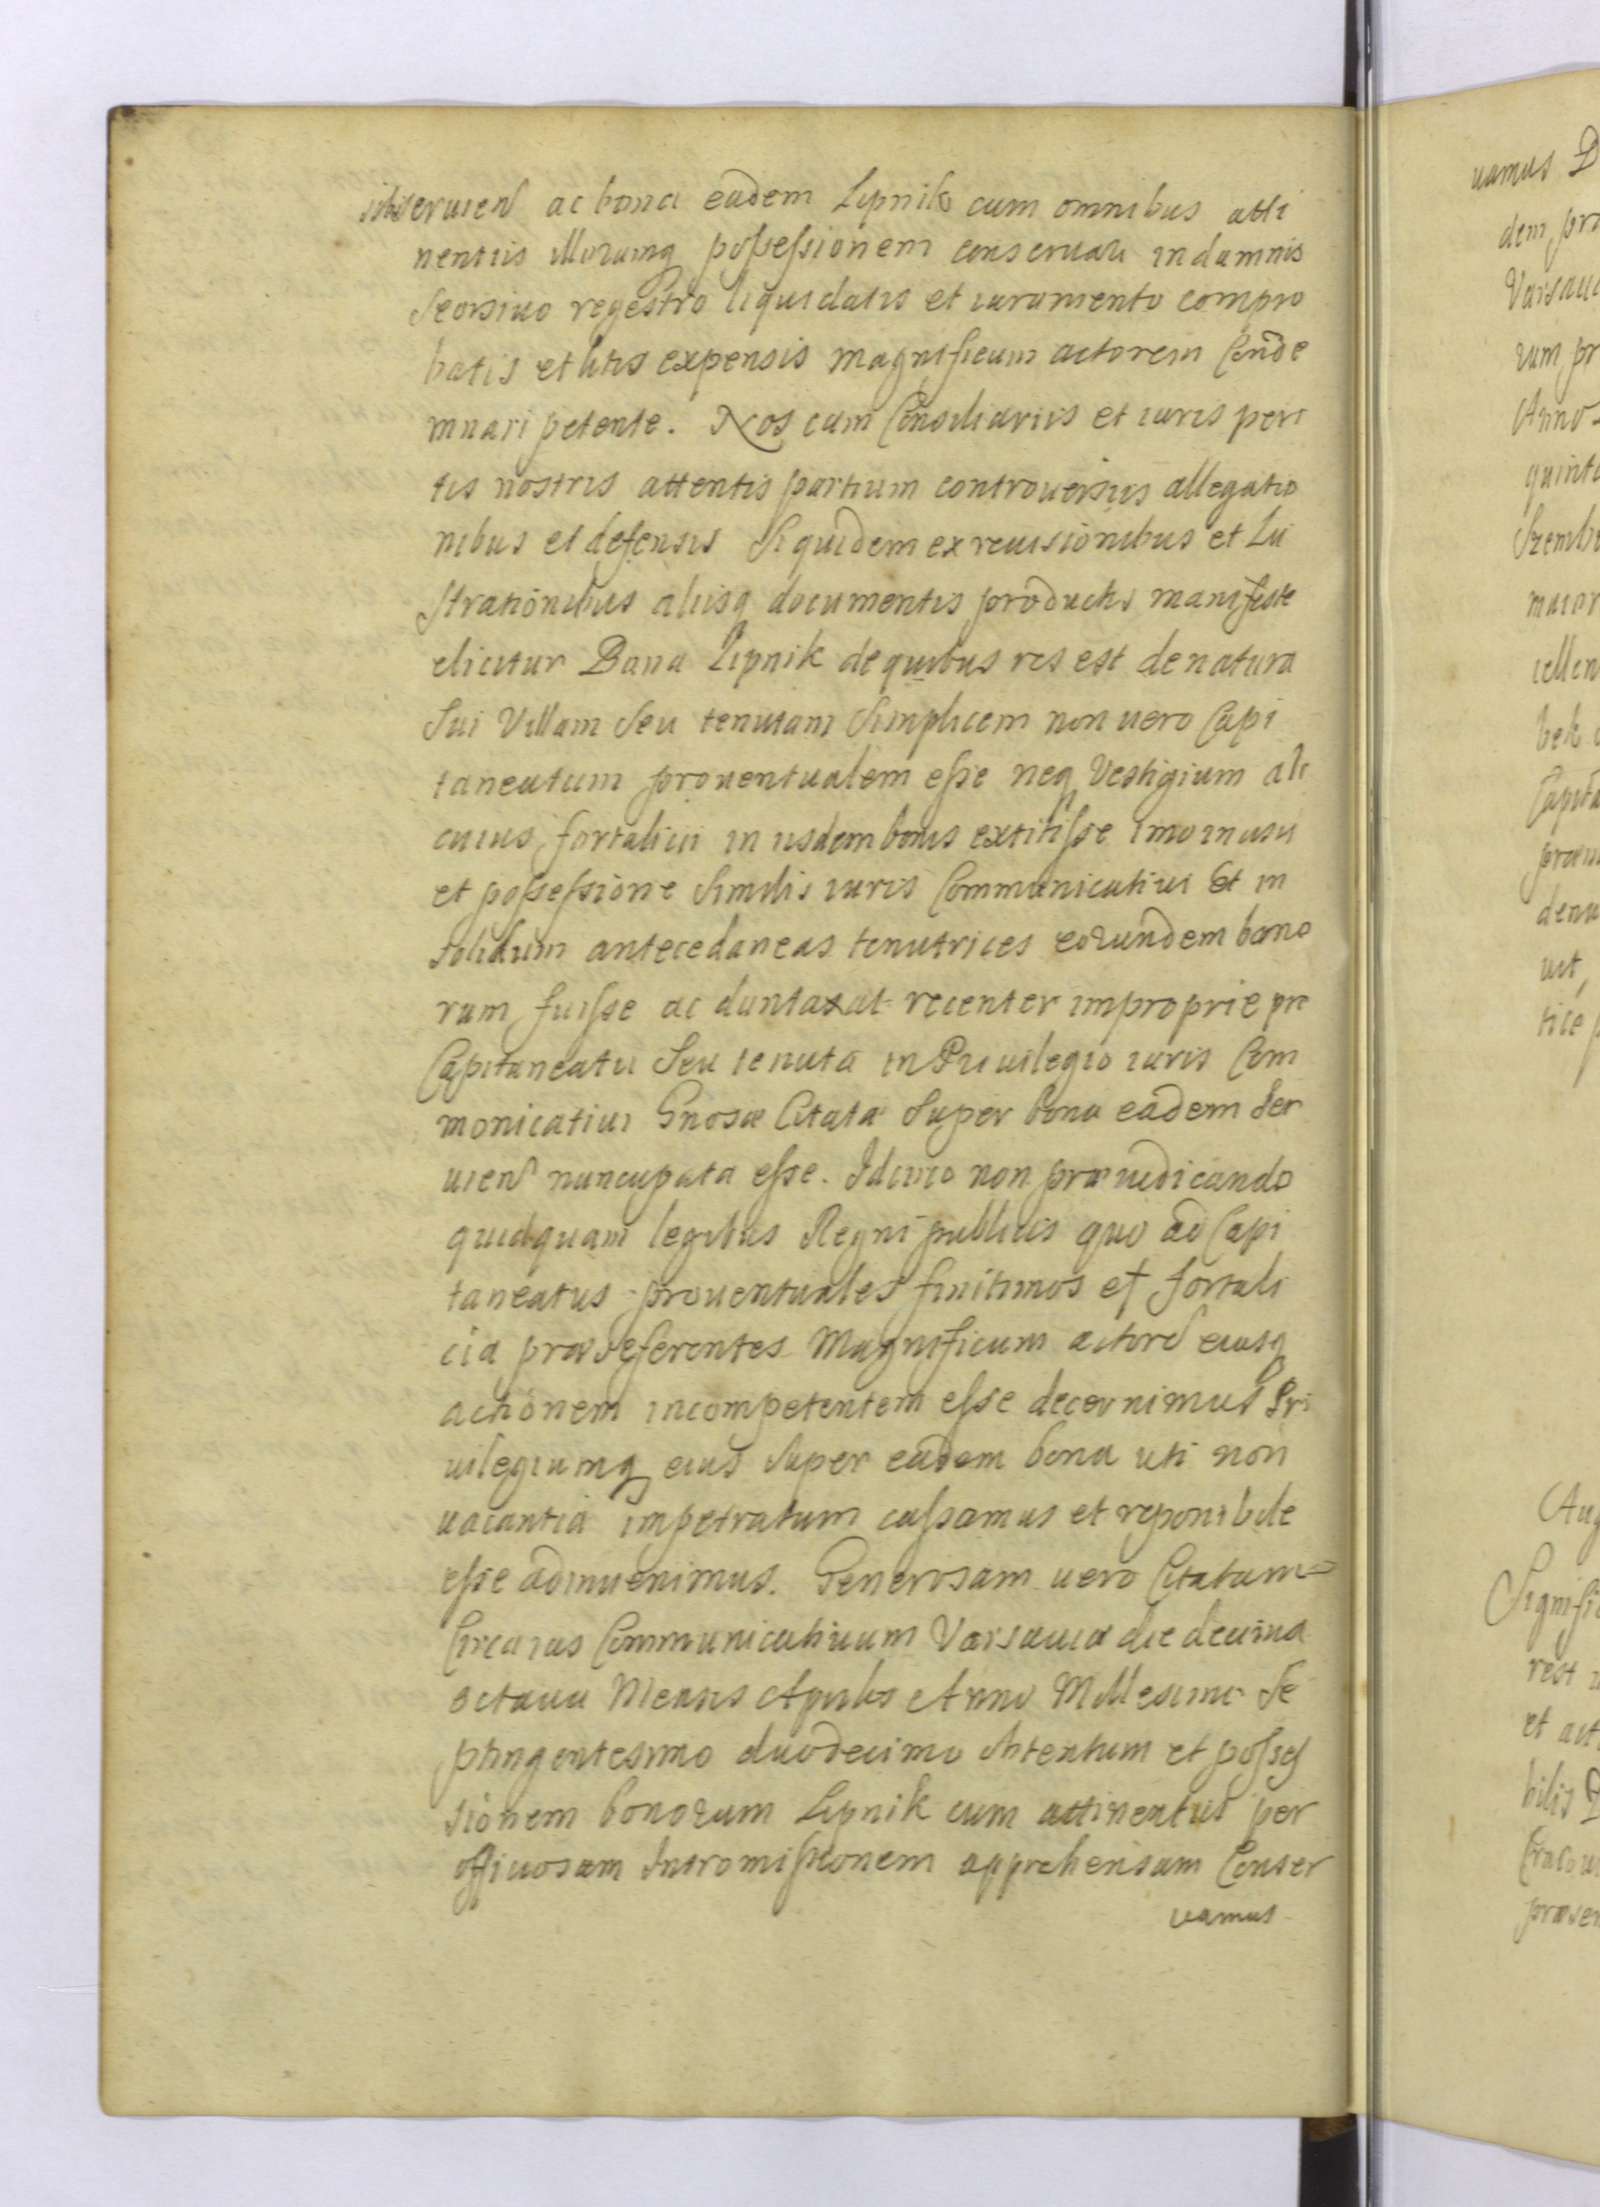 inseruien ac bona eadem Lipnik cum omnibus atti
nentiis illorumq possessionem conseruari in damnis
Seorsiuo regestro liquidatis et iuramento compro
batis et litis expensis magnificum actorem Conde
mnari petente. Nos cum Consiliariis et iuris peri
tis nostris attentis partium controuersiis allegatio
nibus et defensis Siquidem ex reuisionibus et Lu
strationibus aliisq documentis productis manifeste
elicitur Bona Lipnik de quibus res est de natura
Sui Villam Seu tenutam Simplicem non uero Capi
taneatum prouentualem esse neq Vestigium ali
cuius fortalicii in iisdem bonis extitisse imo in usu
et possessione Similis iuris Communicatiui Et in
solidum antecedaneas tenutrices eorundem bono
rum fuisse ac duntaxat recenter improprie pre
Capitaneatu Seu tenuta in Priuilegio iuris Com
monicatiui Gnosæ Citatæ Super bona eadem Ser
uien nuncupata esse. Idcirco non præiudicando
quidquam legibus Regni publicis quo ad Capi
taneatus prouentuales finitimos et fortali
cia præseferentes Magnificum actore eiusq
actionem incompetentem esse decernimus Pri
uilegiumq eius Super eadem bona uti non
uacantia impetratum cassamus et reponibile
esse adinuenimus. Generosam uero Citatam
Circa ius Communicatiuum Varsauiæ die decima
octaua Mensis Aprilis Anno Millesimo Se
ptingentesimo duodecimo obtentum et posses
sionem bonorum Lipnik cum attinentiis per
officiosam Intromissionem apprehensam Conser
uamus
uamus
dem
Varsaui
rum pr
Anno
quinto
maior
Capita
Aug
et act